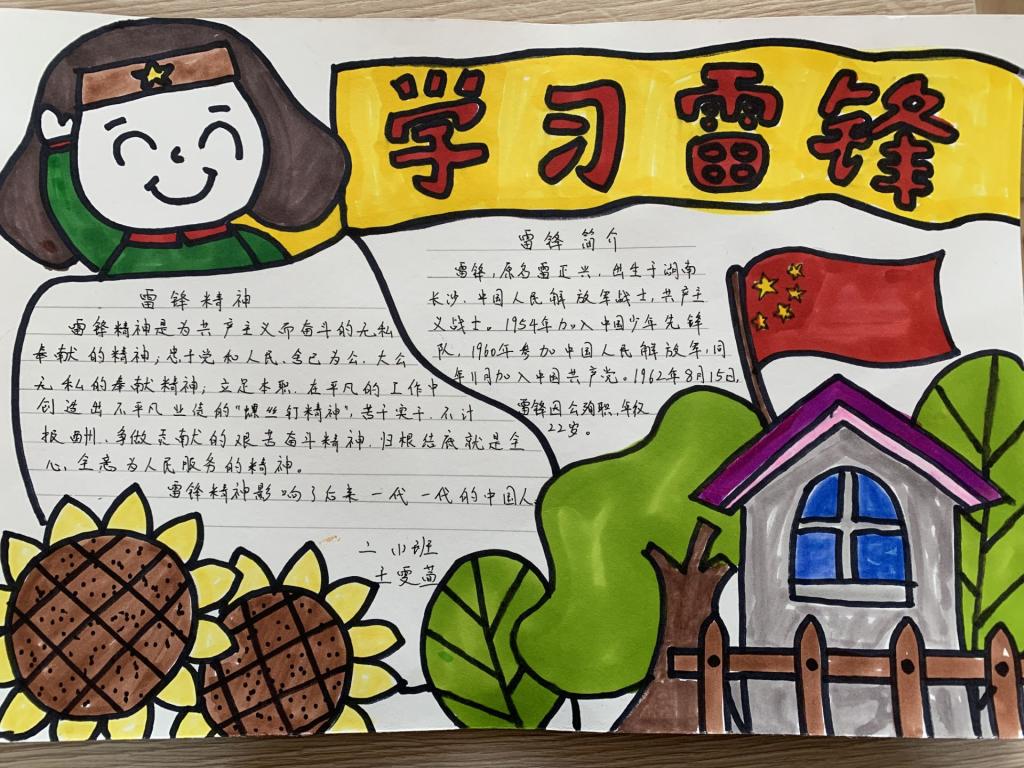 学习雷锋
雷锋简介
雷锋,原名雷正兴,出生于湖南
长沙,中国人民解放军战士,共产主
义战士。1954年加入中国少年先锋
队,1960年参加中国人民解放军,同
年11月加入中国共产党。1962年8月15日,
雷锋因公殉职,年仅
22岁。
雷锋精神
雷锋精神是为共产主义而奋斗的无私
奉献的精神;忠于党和人民、舍已为公、大公
无私的奉献精神;立足本职、在平凡的工作中
创造出不平凡业绩的"螺丝钉精神",苦干实干、不计
报酬、争做贡献的艰苦奋斗精神,归根结底就是全
心全意为人民服务的精神。
雷锋精神影响了后来一代一代的中国人。
二小班
王雯菡